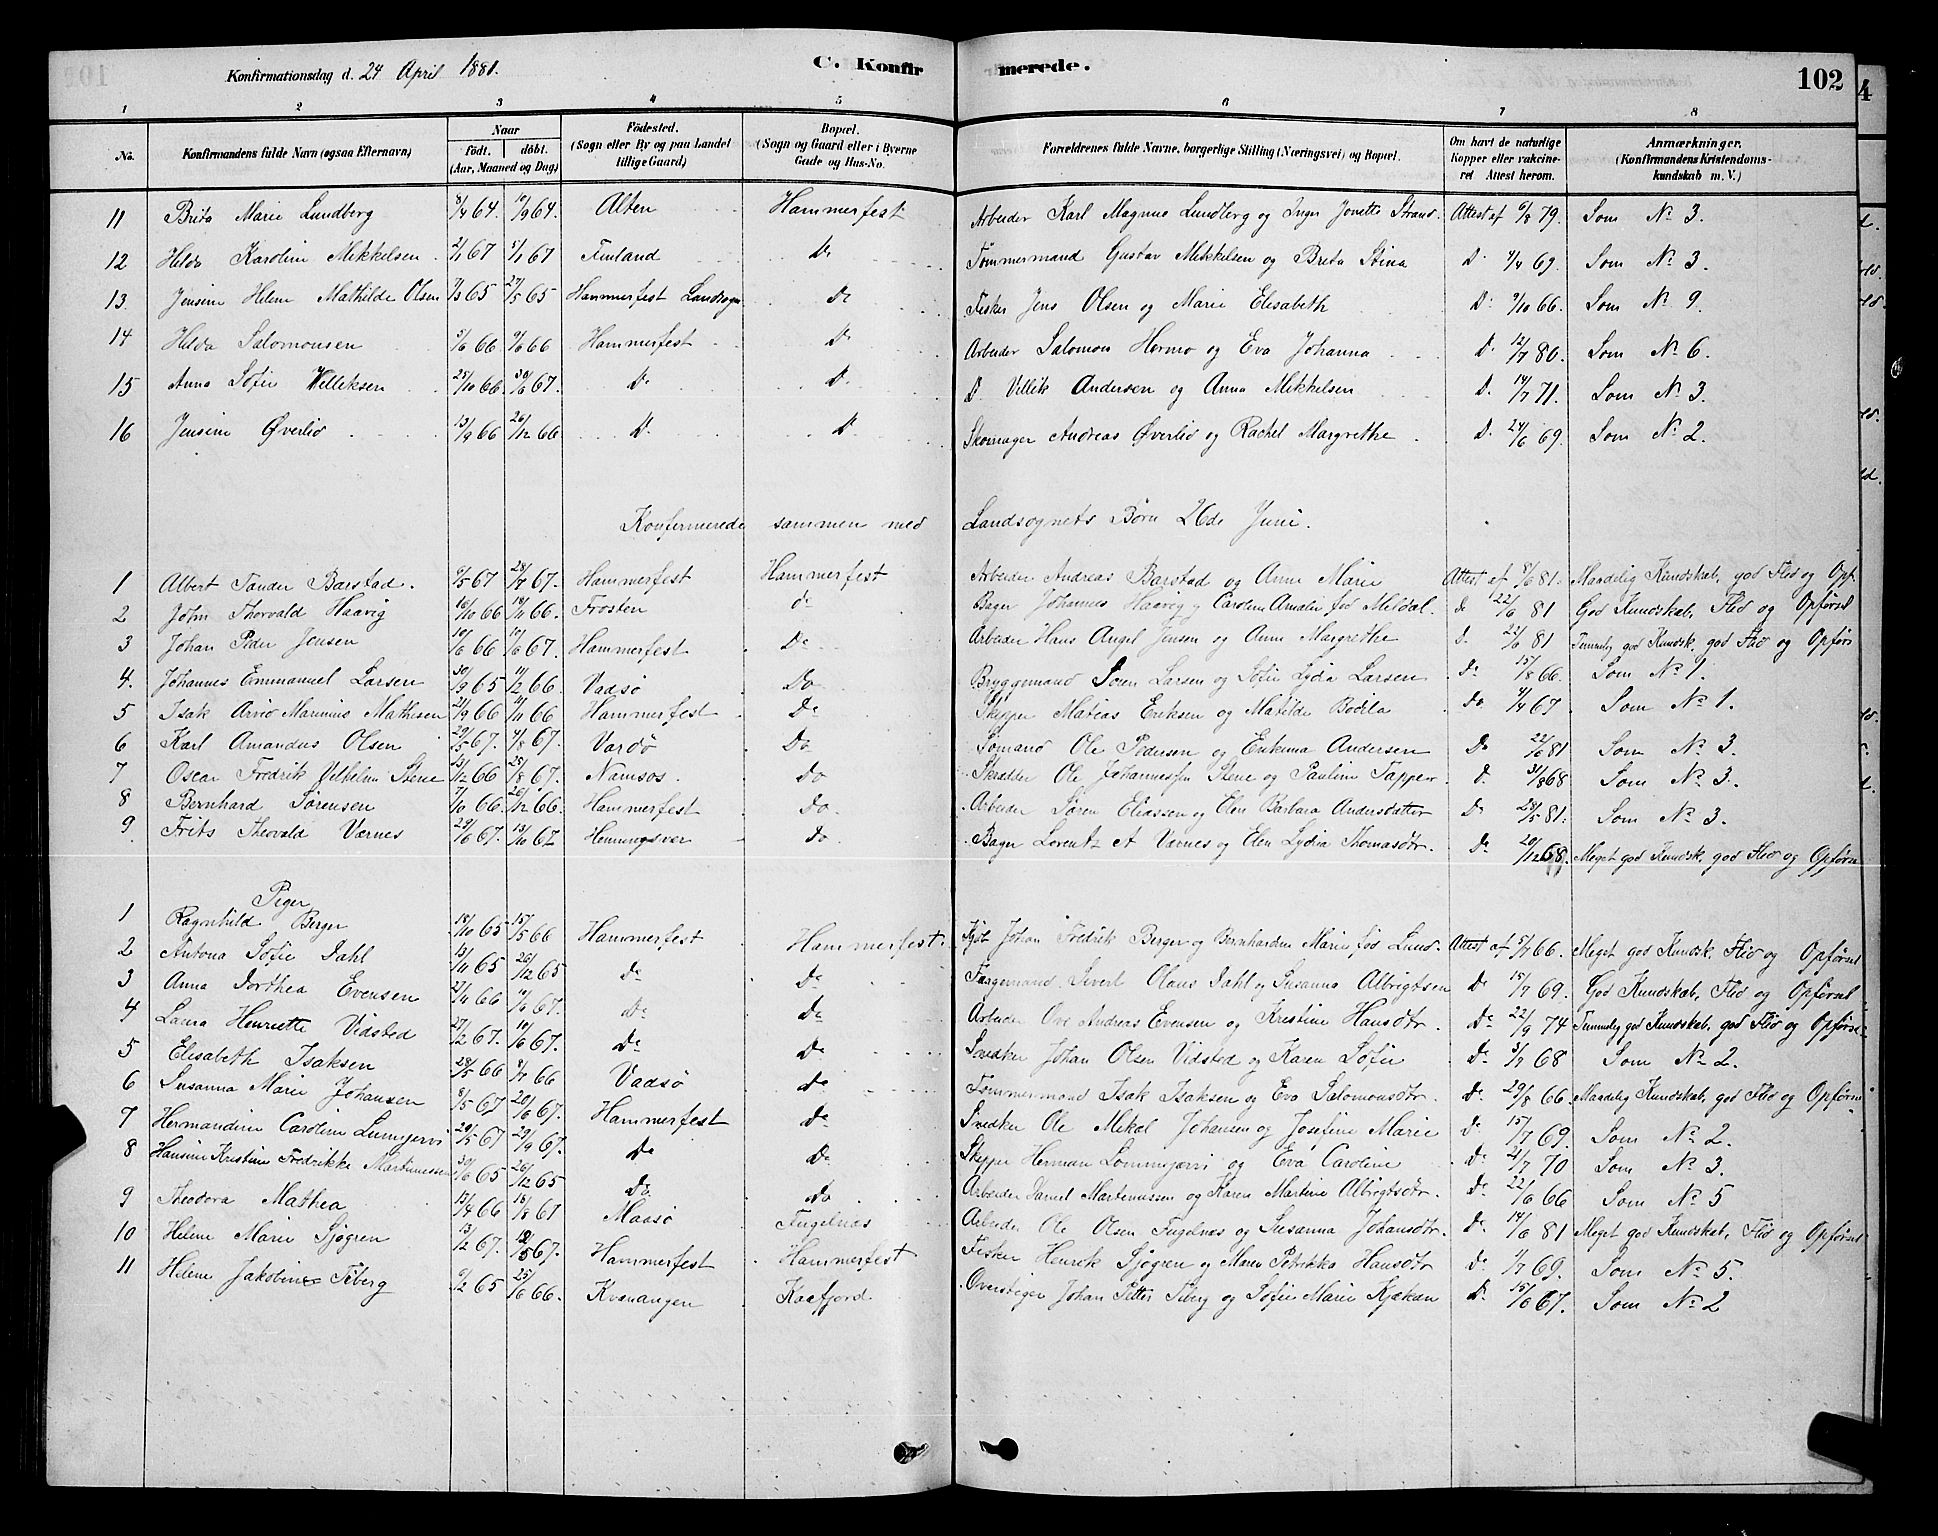 Konfirmationsdag d. 24 April 1881.
C. Konfirmerede.
102
1 2 3 4 5 6 7 8
No. Konfirmandens fulde Navn (ogsaa Efternavn) Naar født. døbt. (Aar, Maaned og Dag) Fødested. (Sogn eller By og paa Landet tillige Gaard) Bopæl. (Sogn og Gaard eller i Byerne Gade og Hus-No. Forældrenes fulde Navne, borgerlige Stilling (Næringsvei) og Bopæl. Om havt de naturlige Kopper eller vakcineret Attest herom. Anmærkninger. (Konfirmandens Kristendomskundskab m. V.)
11 Brita Marie Lundberg 8/4 64. 10/9 64. Alten Hammerfest Arbeider Karl Magnus Lundberg og Inger Jonette Strand. Attest af 6/8 79. Som No 3.
12 Hilda Karoline Mikkelsen 2/1 67 5/1 67 Finland Do Tømmermand Gustav Mikkelsen og Brita Stina D. 4/4 69. Som No 3.
13. Jensine Helene Mathilde Olsen 7/3 65 27/5 65 Hammerfest Landsogn Do Fisker Jens Olsen og Marie Elisabeth D. 9/10 66. Som No 9.
14 Hilda Salomonsen 5/6 66 9/6 66 Hammerfest D. Arbeider Salomon Hermo og Eva Johanna D. 12/7 80. Som No 6.
15 Anna Sofie Velliksen 25/10 66. 30/6 67. D. D. D. Villik Andersen og Anna Mikkelsen D. 14/7 71. Som No 3.
16 Jensine Øverlid 13/9 66 26/12 66 D. D. Skomager Andreas Øverlid og Rachel Margrethe D. 24/6 69. Som No 2.
Konfermerede sammen med Landsognets Børn 26de Juni.
1 Albert Tander Barstad. 6/5 67 28/7 67. Hammerfest Hammerfest Arbeider Andreas Barstad og Anne Marie Attest af 8/6 81. Maadelig Kundskab, god Flid og Opf.
2 John Thorvald Haavig 16/10 66 18/11 66. Frosten do Bager Johannes Haavig og Caroline Amalie fød Meldal. do 22/6 81 God Kundskab, Flid og Opførsel
3 Johan Peder Jensen 10/6 66 10/6 67. Hammerfest Do Arbeider Hans Angel Jensen og Anne Margrethe D. 22/6 81 Temmelig god Kundsk. god Flid og Opførs
4. Johannes Emmanuel Larsen 30/9 65 11/2 66. Vadsø Do Bryggemand Søren Larsen og Sofie Lydia Larsen Do 15/8 66. Som No 1.
5 Isak Arvid Marinius Mathisen 21/9 66 11/11 66 Hammerfest Do Skipper Matias Eriksen og Matilde Bodila Do 4/4 67 Som No 1.
6 Karl Amandus Olsen 29/5 67. 4/8 67. Vardø Do Sømand Ole Pedersen og Erikema Andersen Do 22/6 81 Som No 3.
7 Oscar Fredrik Vilhelm Stene 23/12 66 25/8 67. Namsos. Do Skrædder Ole Johannessen Stene og Pauline Tapper D. 31/8 68 Som No 3.
8 Bernhard Sørensen 7/10 66. 26/12 66. Hammerfest Do Arbeider Søren Eliassen og Elen Barbara Andersdatter Do 28/5 81. Som No 3.
9. Frits Theovald Værnes 29/6 67. 13/10 67 Henningsver Do Bager Lorentz A Værnes og Elen Lydia Thomasdtr. Do 20/12 68. Meget god Kundsk. god Flid og Opførsel
Piger
1 Ragnhild Berger 18/10 65 15/5 66 Hammerfest Hammerfest. Kjøb Johan Fredrik Berger og Bernhardine Marie fød Lund. Attest af 5/7 66. Meget god Kundsk. Flid og Opførsel
2 Antona Sofie Dahl 13/11 65 26/12 65 Do Do Færgemand Sivert Olaus Dahl og Susanna Albrigtsen D. 15/7 69. God Kundskab, Flid og Opførsel
3 Anna Dorthea Evensen 21/11 66 10/6 67. Do Do Arbeider Ove Andreas Evensen og Kristine Hansdtr. Do 22/9 74 Temmelig god Kundskab, god Flid og Opførse
4 Laura Henriette Vidsted 27/2 67. 10/6 67. Do Do Snedker Johan Olsen Vidsted og Karen Sofie Do 3/7 68 Som No 2.
5 Elisabeth Isaksen 28/5 66 8/7 66 Vadsø Do Tømmermand Isak Isaksen og Eva Salomonsdtr. Do 29/8 66. Maadelig Kundskab, god Flid og Opførse
6 Susanna Marie Johansen 8/5 67 20/6 67. Hammerfest Do Snedker Ole Mikal Johansen og Josefine Marie Do 15/7 69. Som No 2.
7 Hermandine Caroline Lumijervi 20/5 67 29/9 67. Do Do Skipper Herman Lommijærvi og Eva Caroline Do 21/7 70 Som No 3.
8 Hansine Kristine Fredrikke Martinussen 30/6 65 26/12 65 Do Do Arbeider Daniel Martenussen og Karen Martine Albrigtsdtr. Do 22/6 66 Som No 5
9 Theodora Mathea 15/4 66 18/8 67 Maasø Fugelnæs Arbeider Ole Olsen Fugelnæs og Susanna Johansdtr. Do 14/6 81 Meget god Kundskab, Flid og Opførsel
10 Helene Marie Sjøgren 13/2 67. 12/5 67. Hammerfest Hammerfest Fisker Henrik Sjøgren og Maren Petrikka Hansdtr Do 1/7 69. Som No 5.
11 Helene Jakobine Tiberg 9/2 65 25/6 66. Kvænangen Kaafjord Overstiger Johan Petter Tiberg og Sofie Marie Kjækan D. 15/6 67. Som No 2